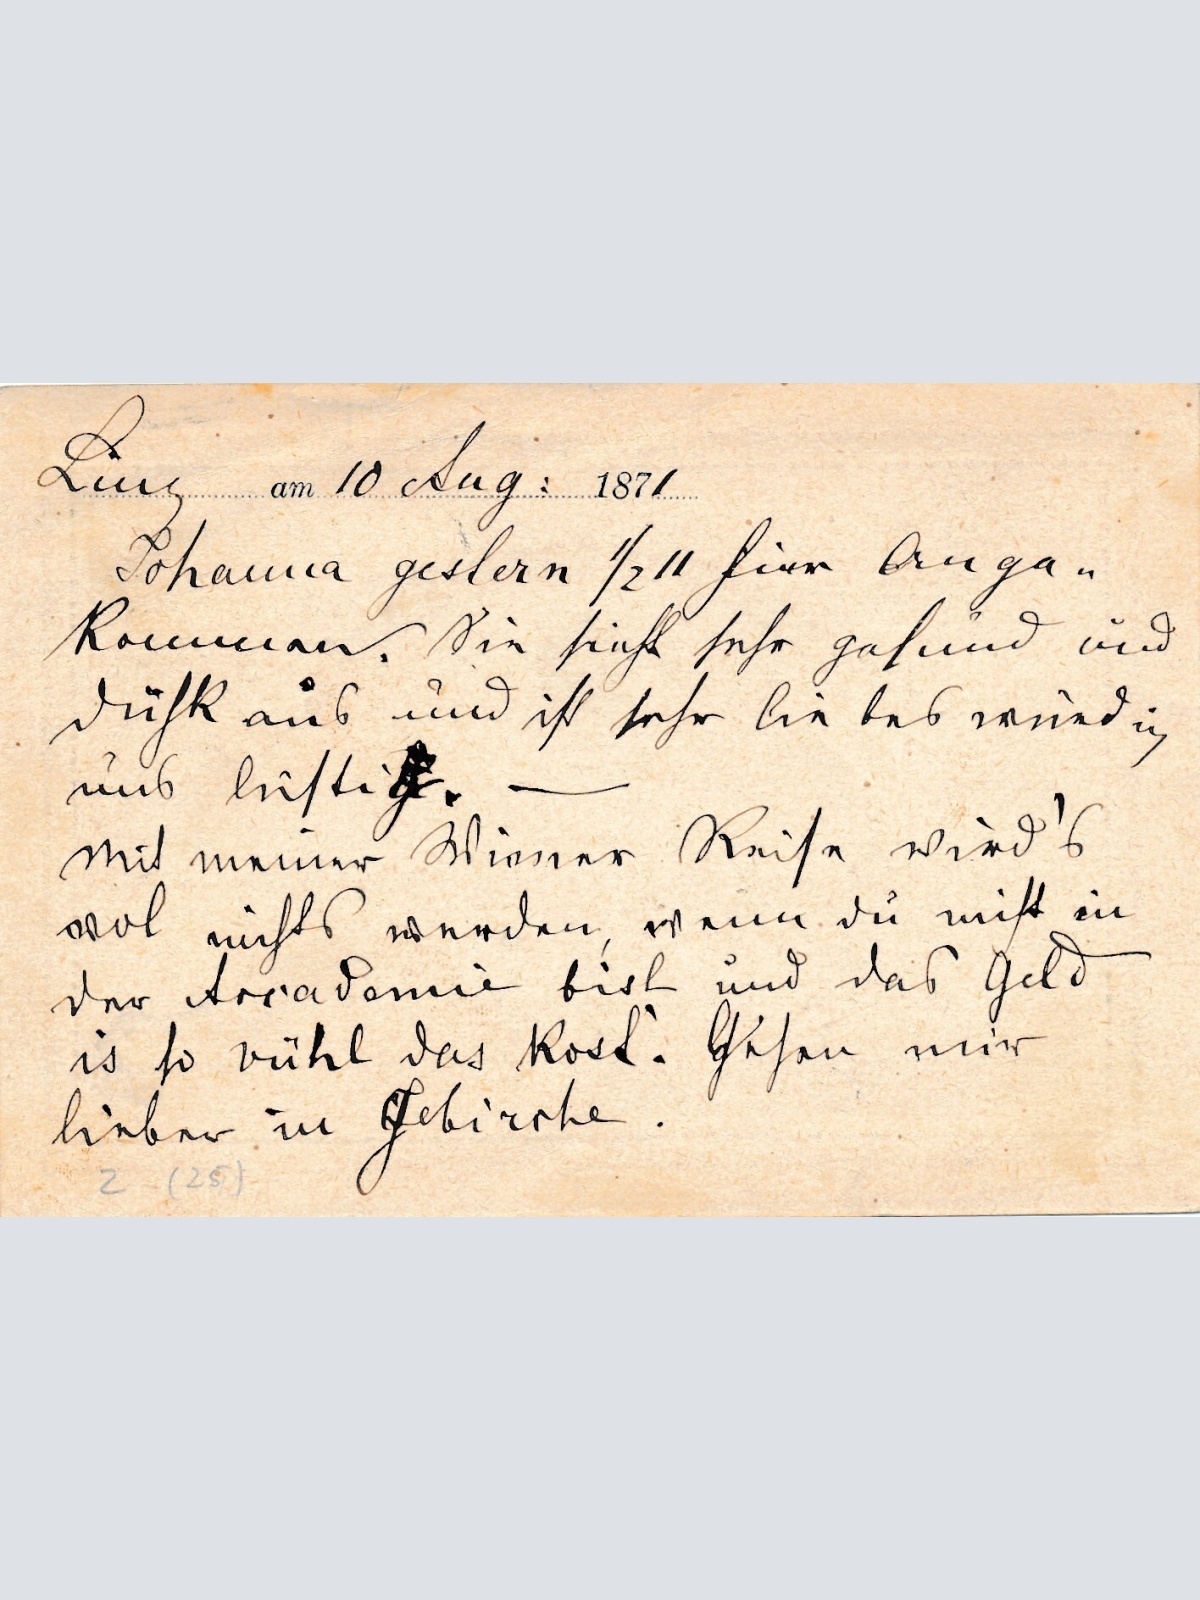 Linz am 10 Aug: 1871
Johanna gestern 1/2 11 hier Ange-
kommen. Sie sieht sehr gesund und
dühk aus und ist sehr liebeswürdig
uns lustig. —
Mit meiner Wiener Reise wird's
wol nichts werden, wenn du nicht in
der Accademie bist und das Geld
is so vühl das kost. Gehen mir
lieber in Gebirche.
2 (25)